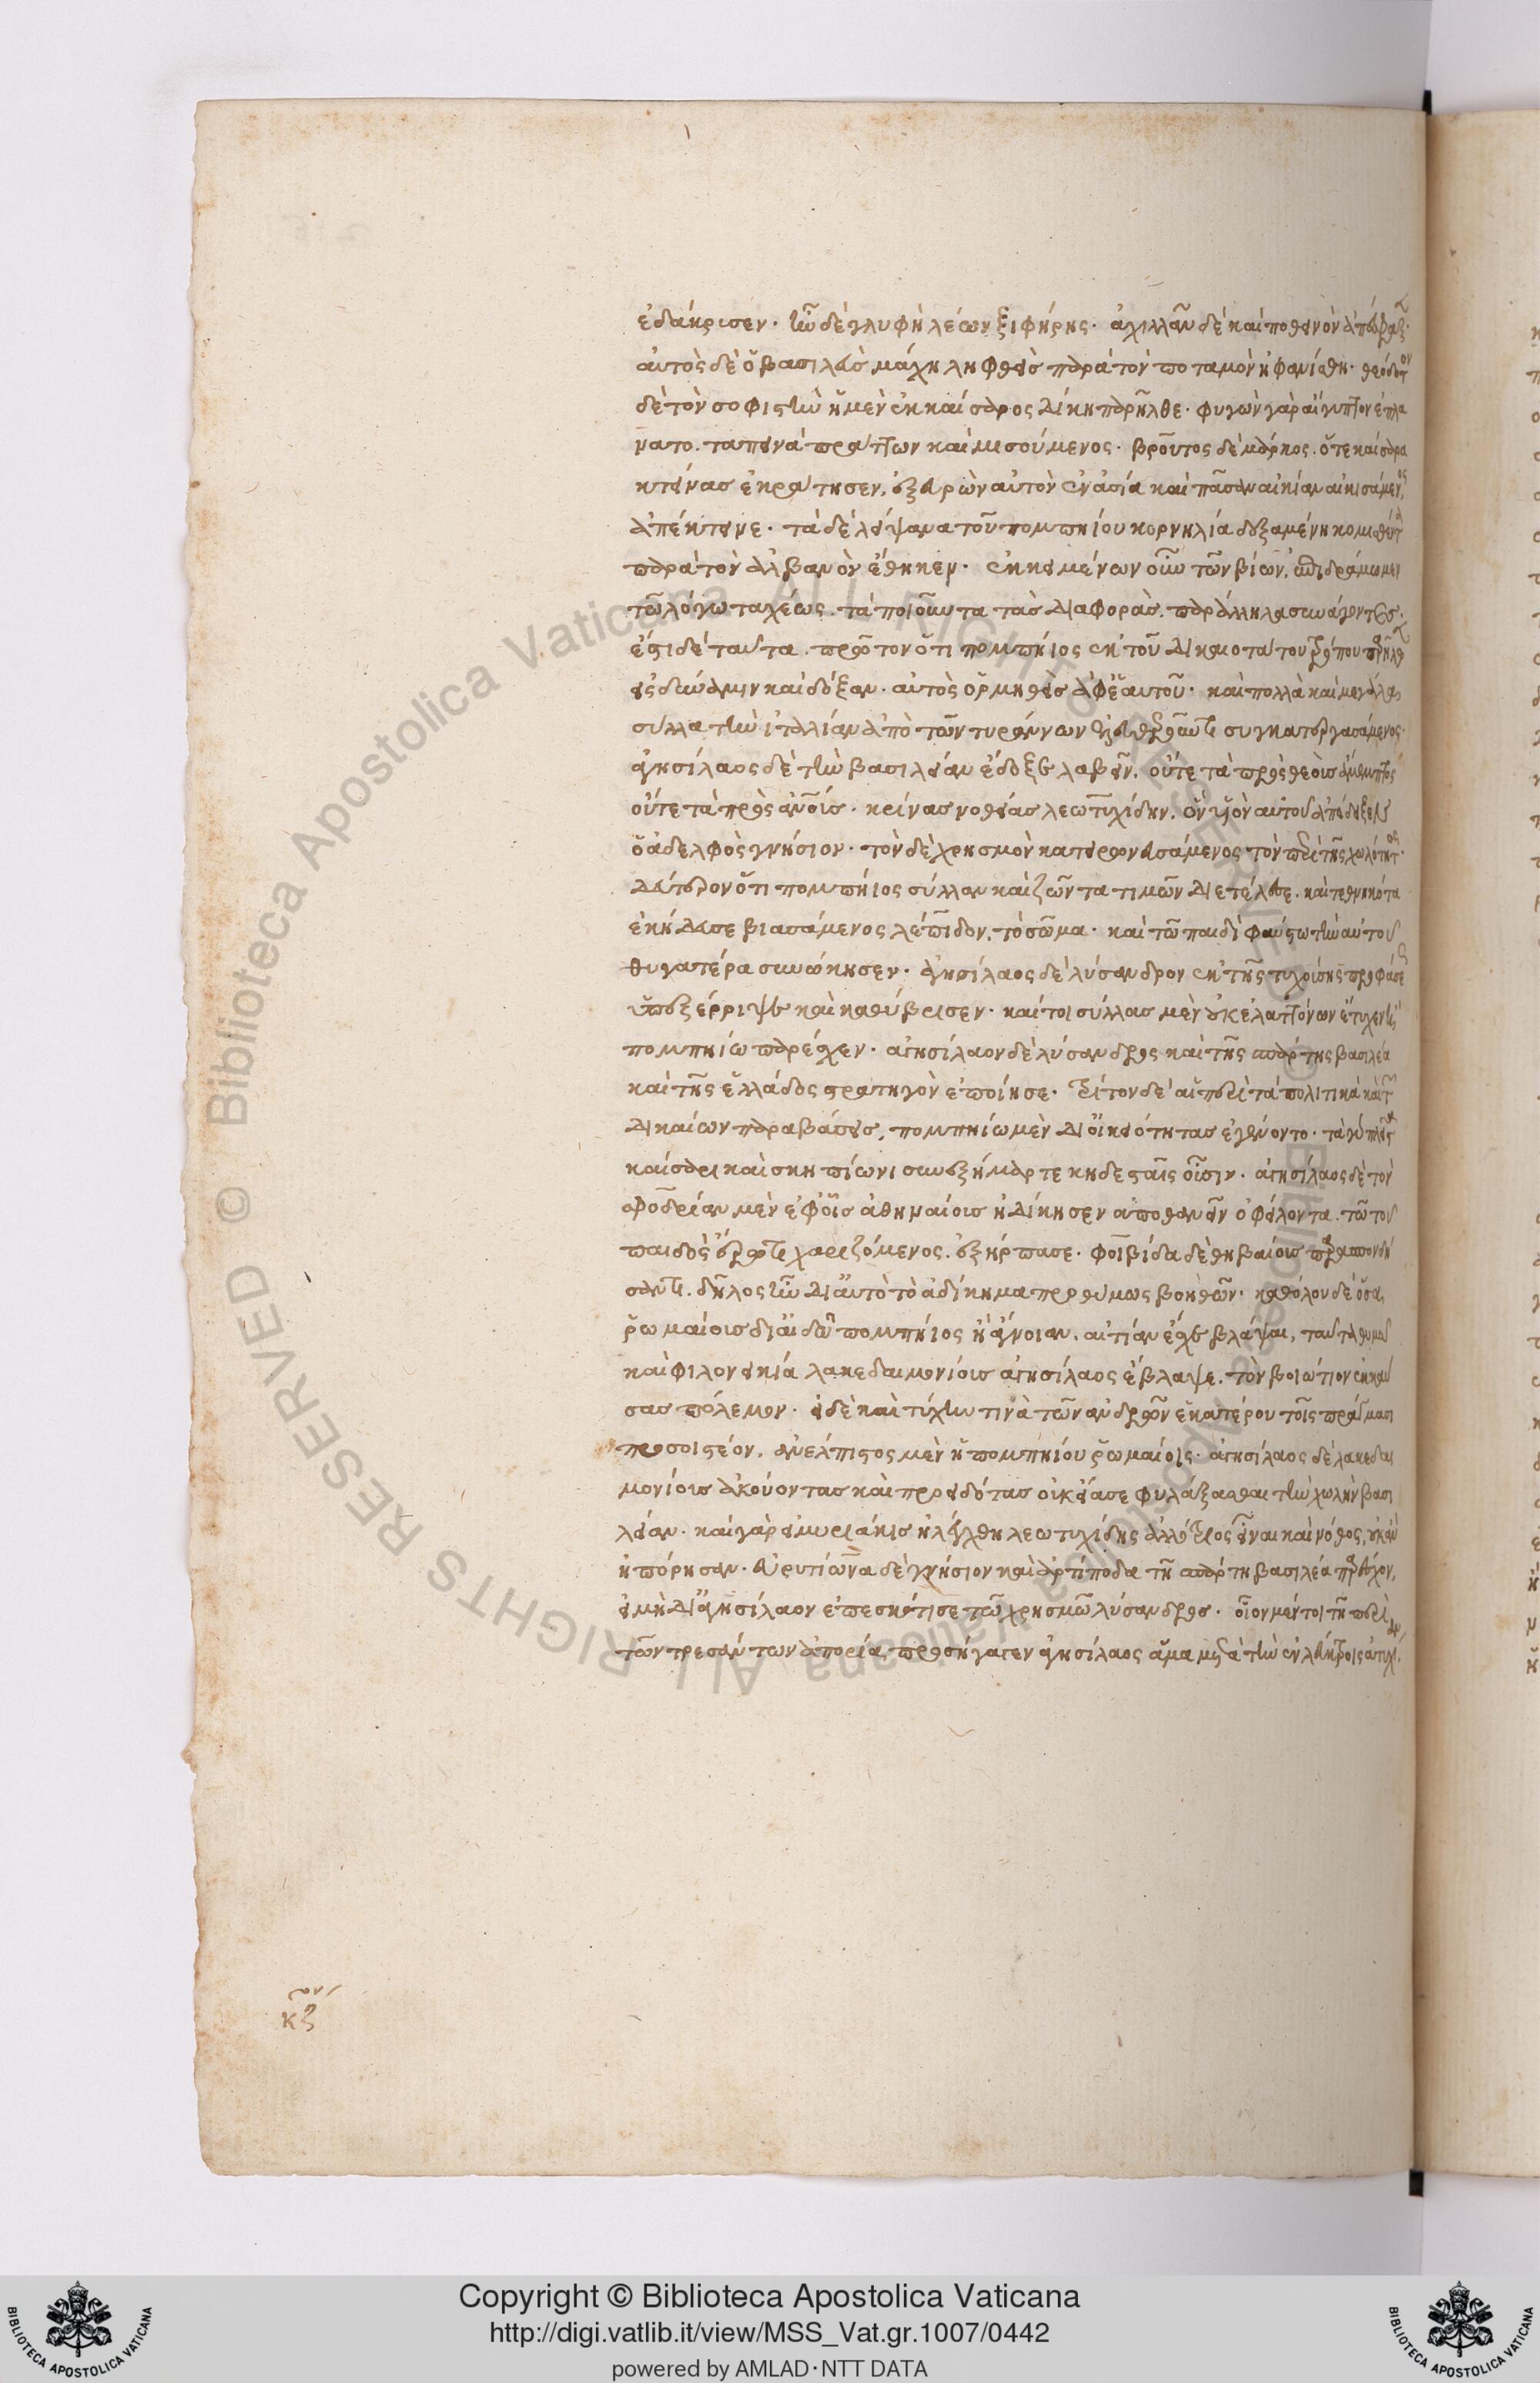 ἐδάκρυσεν· ἦν δὲ γλυφὴ λέων ξιφήρης· ἀχιλλᾶν δὲ καὶ ποθεινὸν ἀποσφάξ
αὐτὸς δὲ ὁ βασιλεὺς μάχη ληφθεὶς παρὰ τὸν ποταμὸν ἠφανίσθη· θεόδοτον
δὲ τὸν σοφιστὴν ἡ μὲν ἐκ καίσαρος δίκη παρῆλθε· φυγὼν γὰρ αἴγυπτον ἐπλα
νᾶτο. ταπεινὰ πράττων καὶ μισούμενος· βροῦτος δὲ μάρκος. ὅτε καίσαρα
κτείνας ἐκράτησεν, ἐξευρὼν αὐτὸν ἐν ἀσία καὶ πᾶσαν αἰκίαν αἰκισάμενος
ἀπέκτεινε· τὰ δὲ λείψανα τοῦ πομπηίου κορνηλία δεξαμένη κομισθέντα
παρὰ τὸν ἀλβανὸν ἔθηκεν· ἐκκειμένων οὖν τῶν βίων, ἐπιδράμωμεν
τῶ λόγω ταχέως. τὰ ποιοῦντα τὰς διαφορὰς. παράλληλα συνάγοντες·
ἔστι δὲ ταῦτα. πρῶτον ὅτι πομπήιος ἐκ τοῦ δικαιοτάτου τρόπου παρῆλθ
εἰς δύναμιν καὶ δόξαν· αὐτὸς ὁρμηθεὶς ἀφ' ἑαυτοῦ· καὶ πολλὰ καὶ μεγάλα
σύλλα τὴν ἰταλίαν ἀπὸ τῶν τυράννων ἐλευθεροῦντι συγκατεργασάμενος·
ἀγησίλαος δὲ τὴν βασιλείαν ἔδοξε λαβεῖν, οὔτε τὰ πρὸς θεοὺς ἄμεμπτος
οὔτε τὰ πρὸς ἀνους· κρίνας νοθείας λεωτυχίδην, ὃν υἱὸν αὐτοῦ ἀπέδειξεν
ὁ ἀδελφὸς γνήσιον· τὸν δὲ χρησμὸν κατειρωνευσάμενος τὸν περὶ τῆς χωλότητος·
δεύτερον ὅτι πομπήιος σύλλαν καὶ ζῶντα τιμῶν διετέλεσε. καὶ τεθνηκότα
ἐκήδευσε βιασάμενος λέπιδον, τὸ σῶμα· καὶ τῶ παιδὶ φαύστω τὴν αὑτοῦ
θυγατέρα συνώκησεν· ἀγησίλαος δὲ λύσανδρον ἐκ τῆς τυχούσης προφάσε
ὑπεξέρριψε καὶ καθύβρισεν· καίτοι σύλλας μὲν οὐκ ἐλαττόνων ἔτυχεν ἢ
πομπηίω παρέσχεν· ἀγησίλαον δὲ λύσανδρος καὶ τῆς σπάρτης βασιλέα
καὶ τῆς ἑλλάδος στρατηγὸν ἐποίησε· τρίτον δὲ αἱ περὶ τὰ πολιτικὰ καὶ τ
δικαίων παραβάσεις, πομπηίω μὲν δι' οἰκειότητας ἐγένοντο· τὰ γὰρ πλεῖστ
καίσαρι καὶ σκηπίωνι συνεξήμαρτε κηδεσταῖς οὖσιν· ἀγησίλαος δὲ τὸν
σφοδρίαν μὲν ἐφ' οἷς ἀθηναίους ἠδίκησεν ἀποθανεῖν ὀφείλοντα. τῶ τοῦ
παιδὸς ἔρωτι χαριζόμενος. ἐξήρπασε· φοιβίδα δὲ θηβαίους παρασπονδή
σαντι. δῆλος ἦν δι' αὐτὸ τὸ ἀδίκημα προθύμως βοηθῶν· καθόλου δὲ ὅσα
ῥωμαίους δι' αἰδῶ πομπήιος ἢ ἄγνοιαν. αἰτίαν ἔσχε βλάψαι, ταῦτα θυμοῦ
καὶ φιλονεικία λακεδαιμονίους ἀγησίλαος ἔβλαψε. τὸν βοιώτιον ἐκκαύ
σας πόλεμον· εἰ δὲ καὶ τύχην τινὰ τῶν ἀνδρῶν ἑκατέρου τοῖς πράγμασι
προσοιστέον. ἀνέλπιστος μὲν ἡ πομπηίου ῥωμαίοις· ἀγησίλαος δὲ λακεδαι
μονίους ἀκούοντας καὶ προειδότας οὐκ εἴασε φυλάξασθαι τὴν χωλὴν βασι
λείαν· καὶ γὰρ εἰ μυριάκις ἠλέγχθη λεωτυχίδης ἀλλότριος εἶναι καὶ νόθος, οὐκ ἂν
ἠπόρησαν· εὐρυτίωνα δὲ γνήσιον καὶ ἀρτίποδα τῆ σπάρτη βασιλέα παρασχεῖν,
εἰ μὴ δι' ἀγησίλαον ἐπεσκότισε τῶ χρησμῶ λύσανδρος· οἷον μέντοι τῆ περὶ
τῶν τρεσάντων ἀπορία. προσήγαγεν ἀγησίλαος ἅμα μετὰ τὴν ἐν λεύκτροις ἀτυχί
κζον
Copyright © Biblioteca Apostolica Vaticana
http://digi.vatlib.it/view/MSS_Vat.gr.1007/0442
powered by AMLAD·NTT DATA